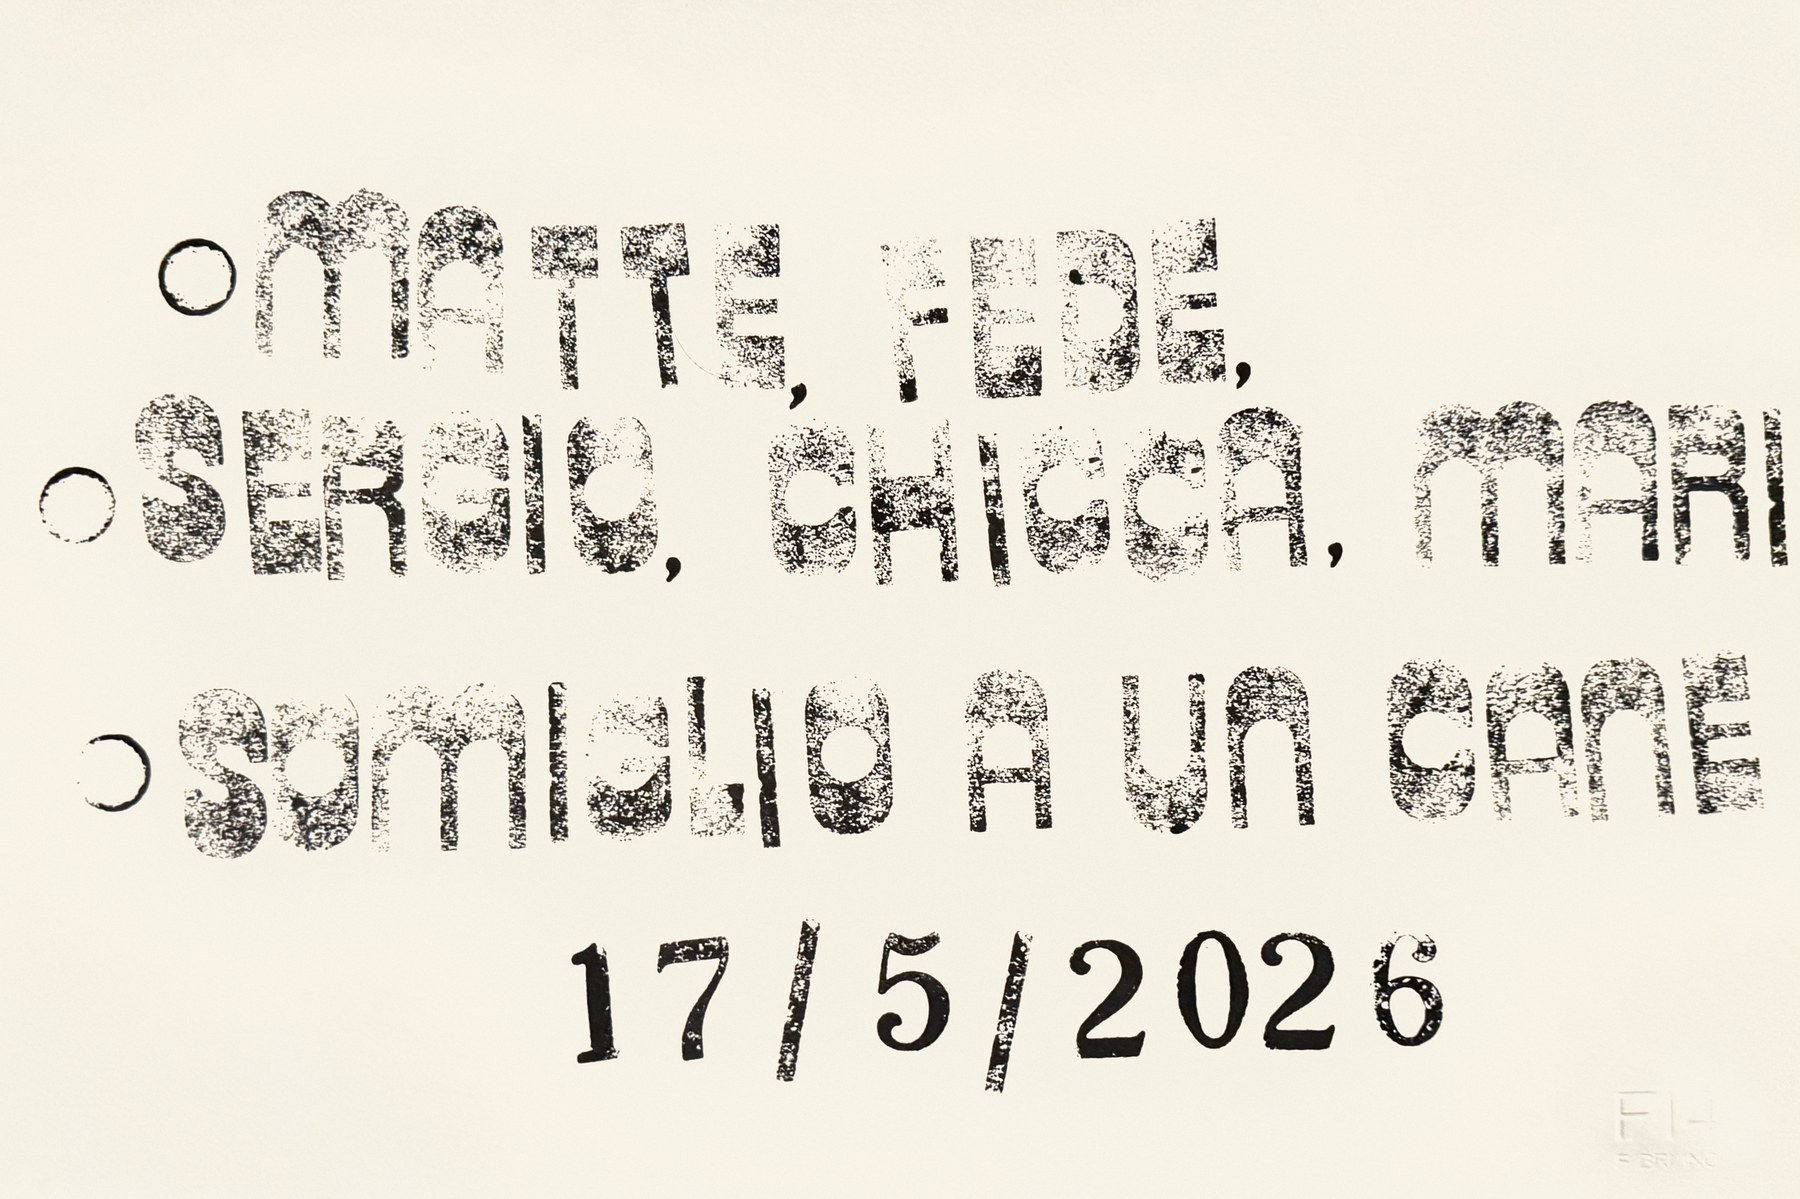 ○ MATTE, FEDE,
○ SERGIO, CHICCA, MARI
○ SOMIGLIO A UN CANE
17/5/2026